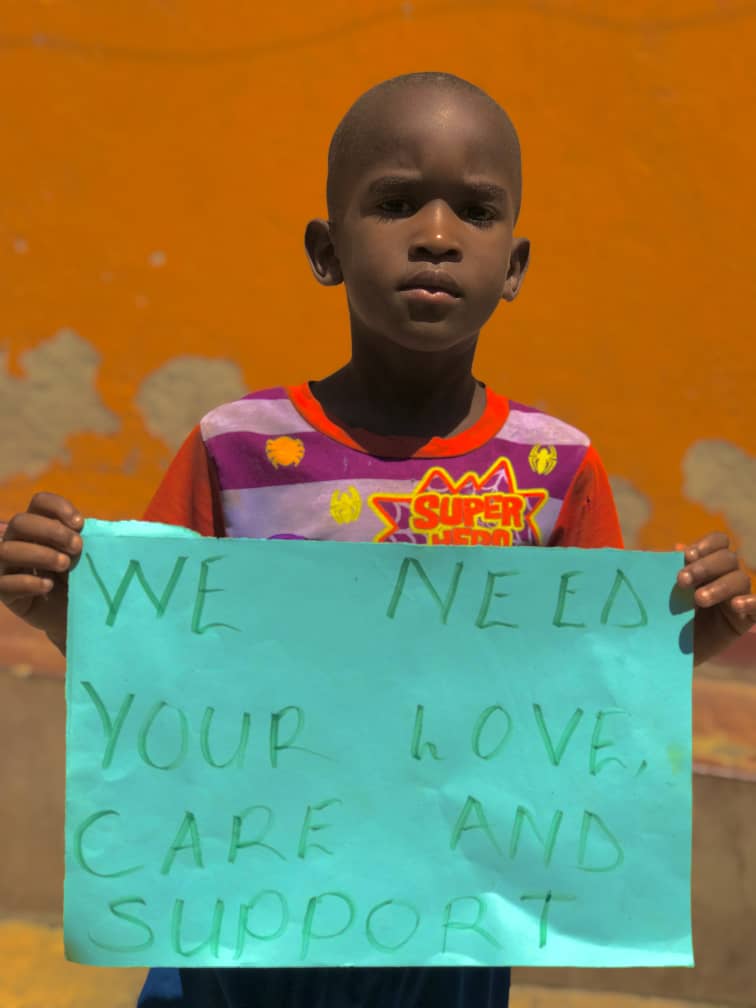 SUPER
HERO
WE NEED
YOUR LOVE,
CARE AND
SUPPORT